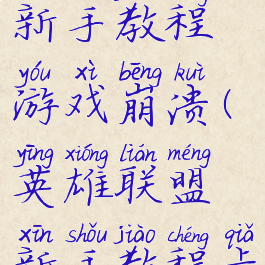 新手教程
yóu xì bēng kuì
游戏崩溃(
yīng xióng lián méng
英雄联盟
xīn shǒu jiào chéng qiǎ
新手教程